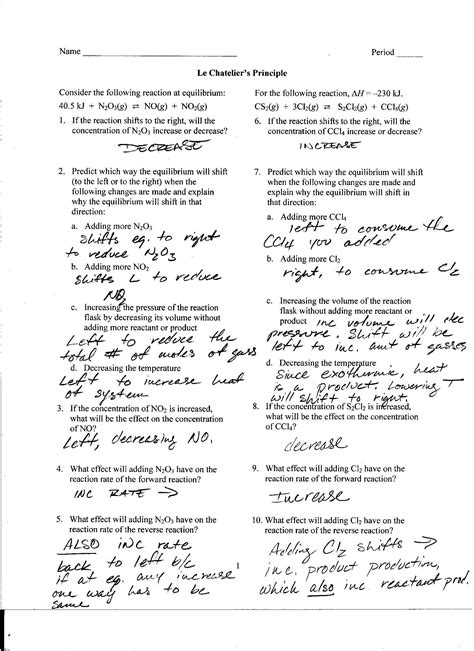 Name
Period
Le Chatelier's Principle
Consider the following reaction at equilibrium:
40.5 kJ + N₂O₃(g) ⇌ NO(g) + NO₂(g)
1. If the reaction shifts to the right, will the
concentration of N₂O₃ increase or decrease?
DECREASE
2. Predict which way the equilibrium will shift
(to the left or to the right) when the
following changes are made and explain
why the equilibrium will shift in that
direction:
a. Adding more N₂O₃
Shifts eq. to right
to reduce N₂O₃
b. Adding more NO₂
Shifts L to reduce
NO₂
c. Increasing the pressure of the reaction
flask by decreasing its volume without
adding more reactant or product
Left to reduce the
total # of moles of gass
d. Decreasing the temperature
Left to increase heat
of system
3. If the concentration of NO₂ is increased,
what will be the effect on the concentration
of NO?
Left, decreasing NO.
4. What effect will adding N₂O₃ have on the
reaction rate of the forward reaction?
INC RATE →
5. What effect will adding N₂O₃ have on the
reaction rate of the reverse reaction?
ALSO inc rate
back to left b/c
if at eq. any increase
one way has to be
same
For the following reaction, ΔH = –230 kJ.
CS₂(g) + 3Cl₂(g) ⇌ S₂Cl₂(g) + CCl₄(g)
6. If the reaction shifts to the right, will the
concentration of CCl₄ increase or decrease?
INCREASE
7. Predict which way the equilibrium will shift
when the following changes are made and
explain why the equilibrium will shift in
that direction:
a. Adding more CCl₄
left to consume the
CCl4 you added
b. Adding more Cl₂
right, to consume Cl₂
c. Increasing the volume of the reaction
flask without adding more reactant or
product inc volume will dec
pressure. Shift will be
left to inc. amt of gasses
d. Decreasing the temperature
Since exothermic, heat
is a product. Lowering T
will shift to right.
8. If the concentration of S₂Cl₂ is increased,
what will be the effect on the concentration
of CCl₄?
decrease
9. What effect will adding Cl₂ have on the
reaction rate of the forward reaction?
Increase
10. What effect will adding Cl₂ have on the
reaction rate of the reverse reaction?
Adding Cl₂ shifts →
inc. product production,
which also inc reactant prod.